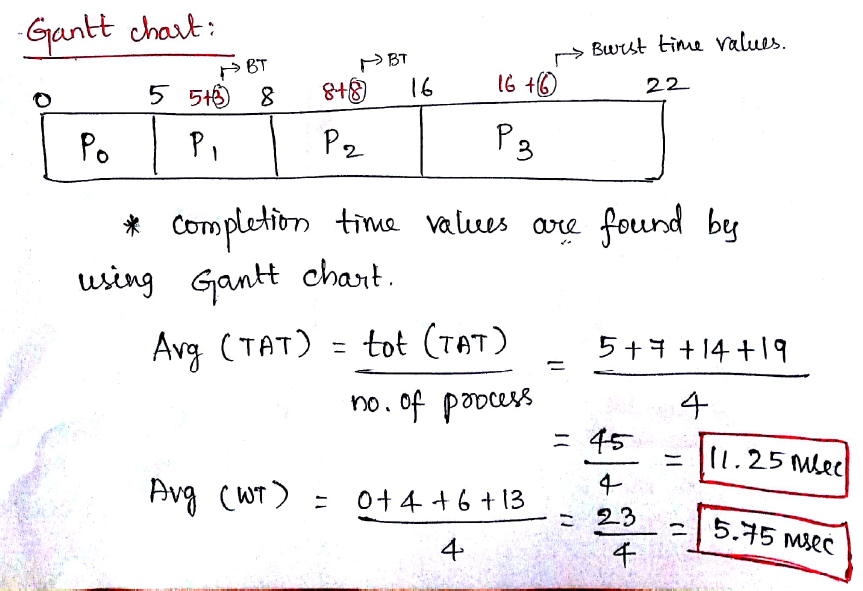 Gantt chart:
→ BT → BT → Burst time values.
0 5 5+3 8 8+8 16 16+6 22
P0 P1 P2 P3
* completion time values are found by
using Gantt chart.
Avg (TAT) = tot (TAT) / no. of process = 5+7+14+19 / 4
= 45 / 4 = 11.25 msec
Avg (WT) = 0+4+6+13 / 4 = 23 / 4 = 5.75 msec